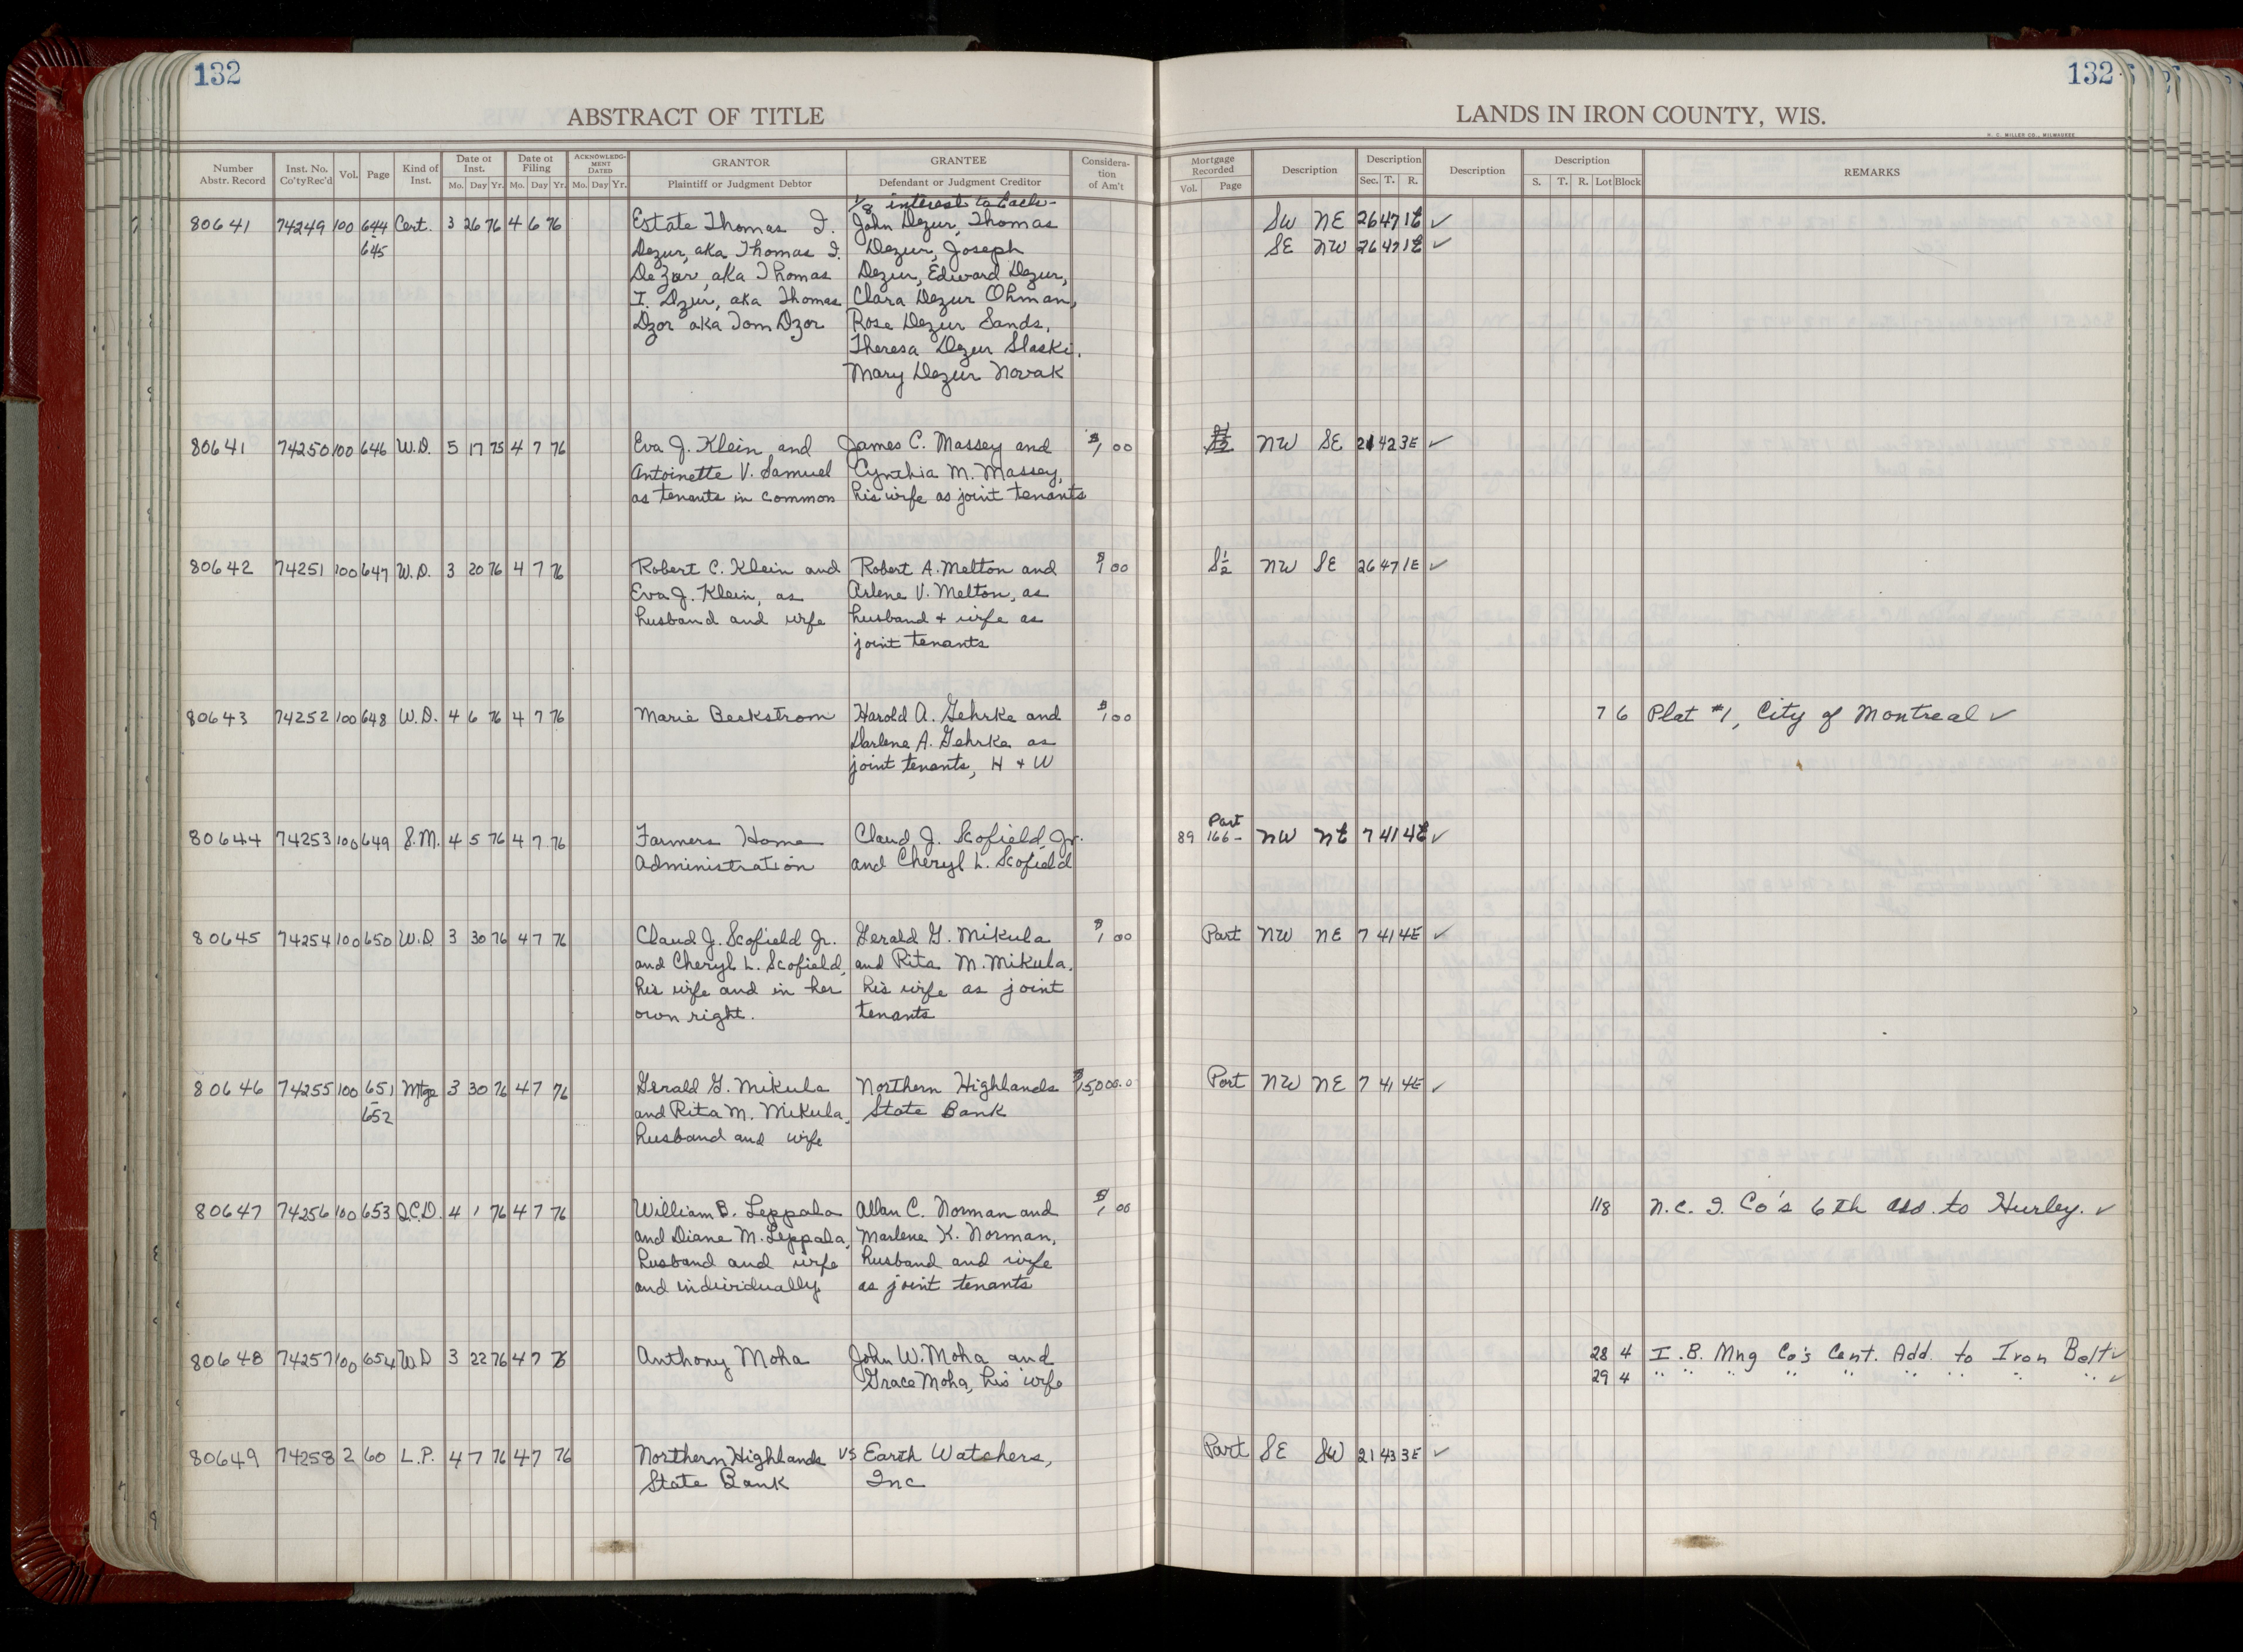 132
132
ABSTRACT OF TITLE
LANDS IN IRON COUNTY, WIS.
H. C. MILLER CO., MILWAUKEE
Number Abstr. Record Inst. No. Co'tyRec'd Vol. Page Kind of Inst. Date of Inst. Mo. Day Yr. Date of Filing Mo. Day Yr. ACKNOWLEDGMENT DATED Mo. Day Yr. GRANTOR Plaintiff or Judgment Debtor GRANTEE Defendant or Judgment Creditor Consideration of Am't
Mortgage Recorded Vol. Page Description Description Sec. T. R. Description Description S. T. R. Lot Block REMARKS
1/8 interest to Each-
80641 74249 100 644 Cert. 3 26 76 4 6 76 Estate Thomas I. John Dezur, Thomas SW NE 26 47 1E ✓
645 Dezur, aka Thomas I. Dezur, Joseph SE NW 26 47 1E ✓
DeZur, aka Thomas Dezur, Edward Dezur,
I. Dzur, aka Thomas Clara Dezur Ohman,
Dzor aka Tom Dzor Rose Dezur Sands,
Theresa Dezur Slaski,
Mary Dezur Novak
80641 74250 100 646 W.D. 5 17 75 4 7 76 Eva J. Klein and James C. Massey and $1 00 NW SE 21 42 3E ✓
Antoinette V. Samuel Cynthia M. Massey,
as tenants in common his wife as joint tenants
80642 74251 100 647 W.D. 3 20 76 4 7 76 Robert C. Klein and Robert A. Melton and $1 00 S½ NW SE 26 47 1E ✓
Eva J. Klein, as Arlene V. Melton, as
husband and wife husband + wife as
joint tenants
80643 74252 100 648 W.D. 4 6 76 4 7 76 Marie Beckstrom Harold A. Gehrke and $1 00 7 6 Plat #1, City of Montreal ✓
Darlene A. Gehrke as
joint tenants, H + W
Part
80644 74253 100 649 S.M. 4 5 76 4 7 76 Farmers Home Claud J. Scofield, Jr. 89 166- NW NE 7 41 4E ✓
Administration and Cheryl L. Scofield
80645 74254 100 650 W.D. 3 30 76 4 7 76 Claud J. Scofield Jr. Gerald G. Mikula $1 00 Part NW NE 7 41 4E ✓
and Cheryl L. Scofield, and Rita M. Mikula,
his wife and in her his wife as joint
own right. tenants
80646 74255 100 651 Mtge 3 30 76 4 7 76 Gerald G. Mikula Northern Highlands $15,000.0 Part NW NE 7 41 4E ✓
652 and Rita M. Mikula, State Bank
husband and wife
80647 74256 100 653 Q.C.D. 4 1 76 4 7 76 William B. Leppala Allan C. Norman and $1 00 118 N.C. I. Co's 6th add. to Hurley. ✓
and Diane M. Leppala, Marlene K. Norman,
husband and wife husband and wife
and individually as joint tenants
80648 74257 100 654 W.D 3 22 76 4 7 76 Anthony Moha John W. Moha and 28 4 I.B. Mng Co's Cent. Add. to Iron Belt ✓
Grace Moha, his wife 29 4 " " " " " " " " ✓
80649 74258 2 60 L.P. 4 7 76 4 7 76 Northern Highlands VS Earth Watchers, Part SE SW 21 43 3E ✓
State Bank Inc